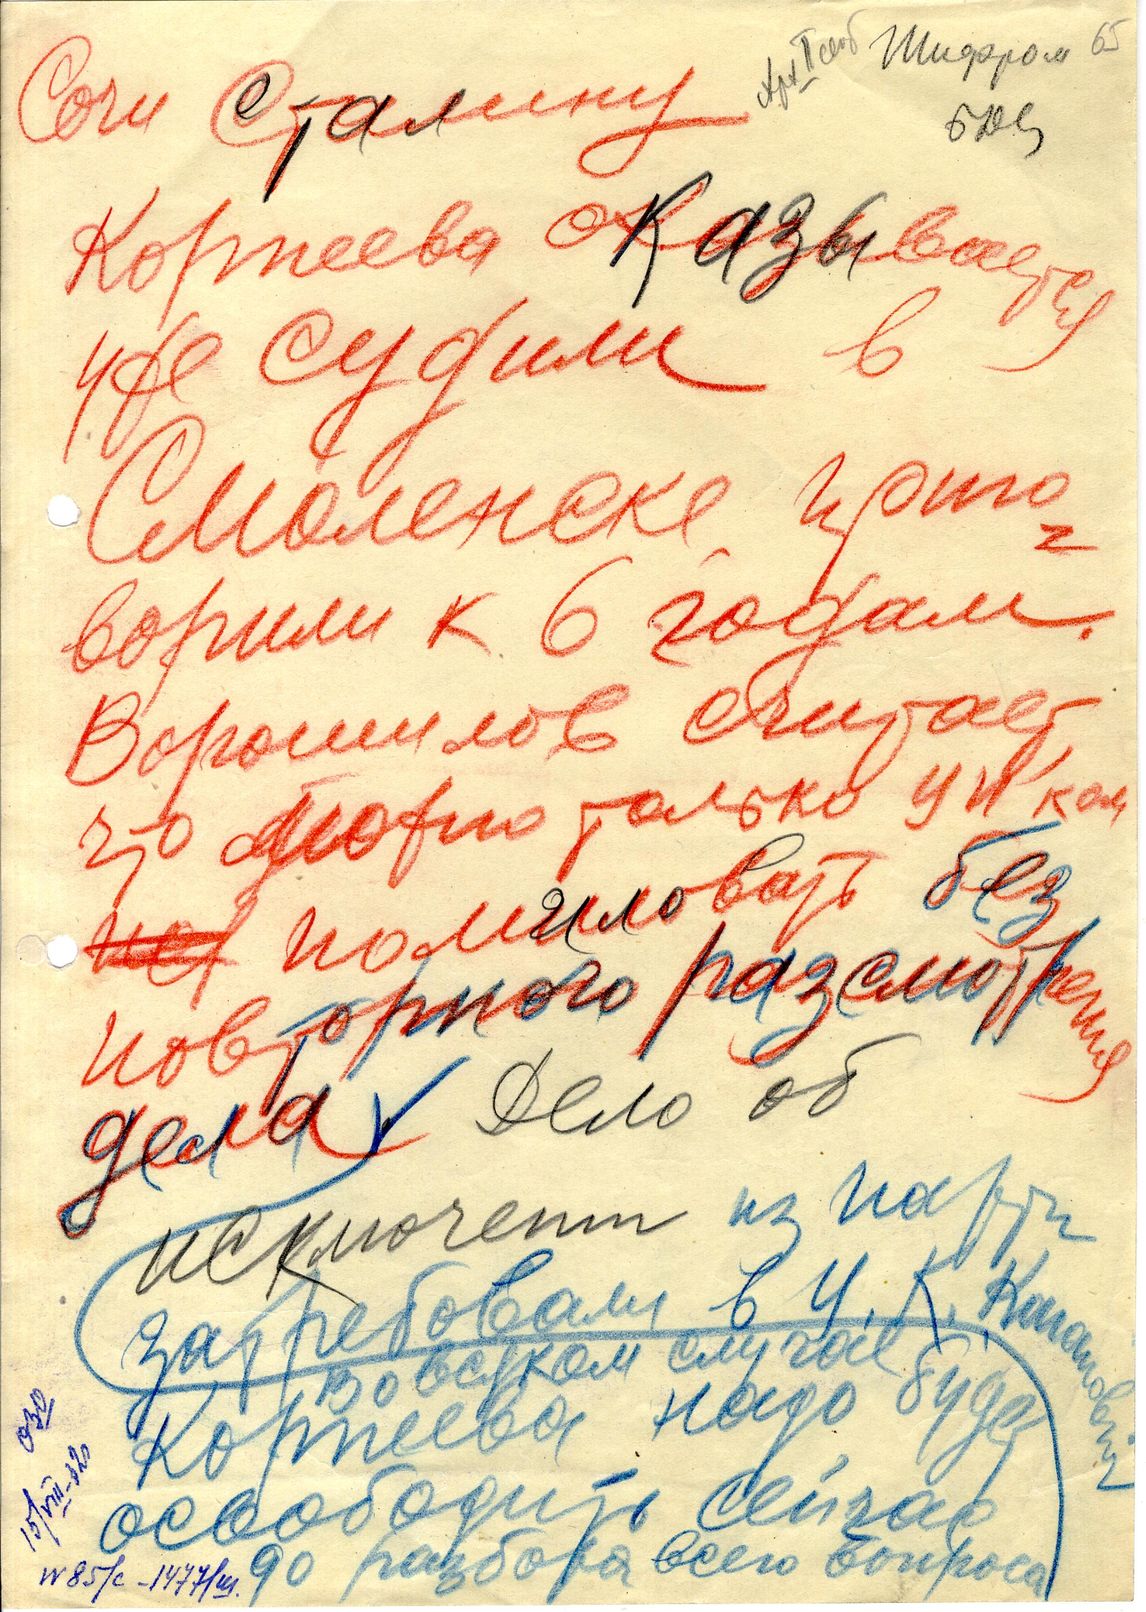 Шифром 65
Сочи Сталину
Корнеева оказывается
уже судили в
Смоленске приго
ворили к 6 годам.
Ворошилов считает
что можно только ЦИ'ком
помиловать без
повторного разсмотрения
дела Дело об
исключении из партии
затребовали в Ц.К. Каганович
Во всяком случае
Корнеева надо будет
освободить сейчас
до разбора всего вопроса
15/VIII-32г
N85/с-1477/ш.